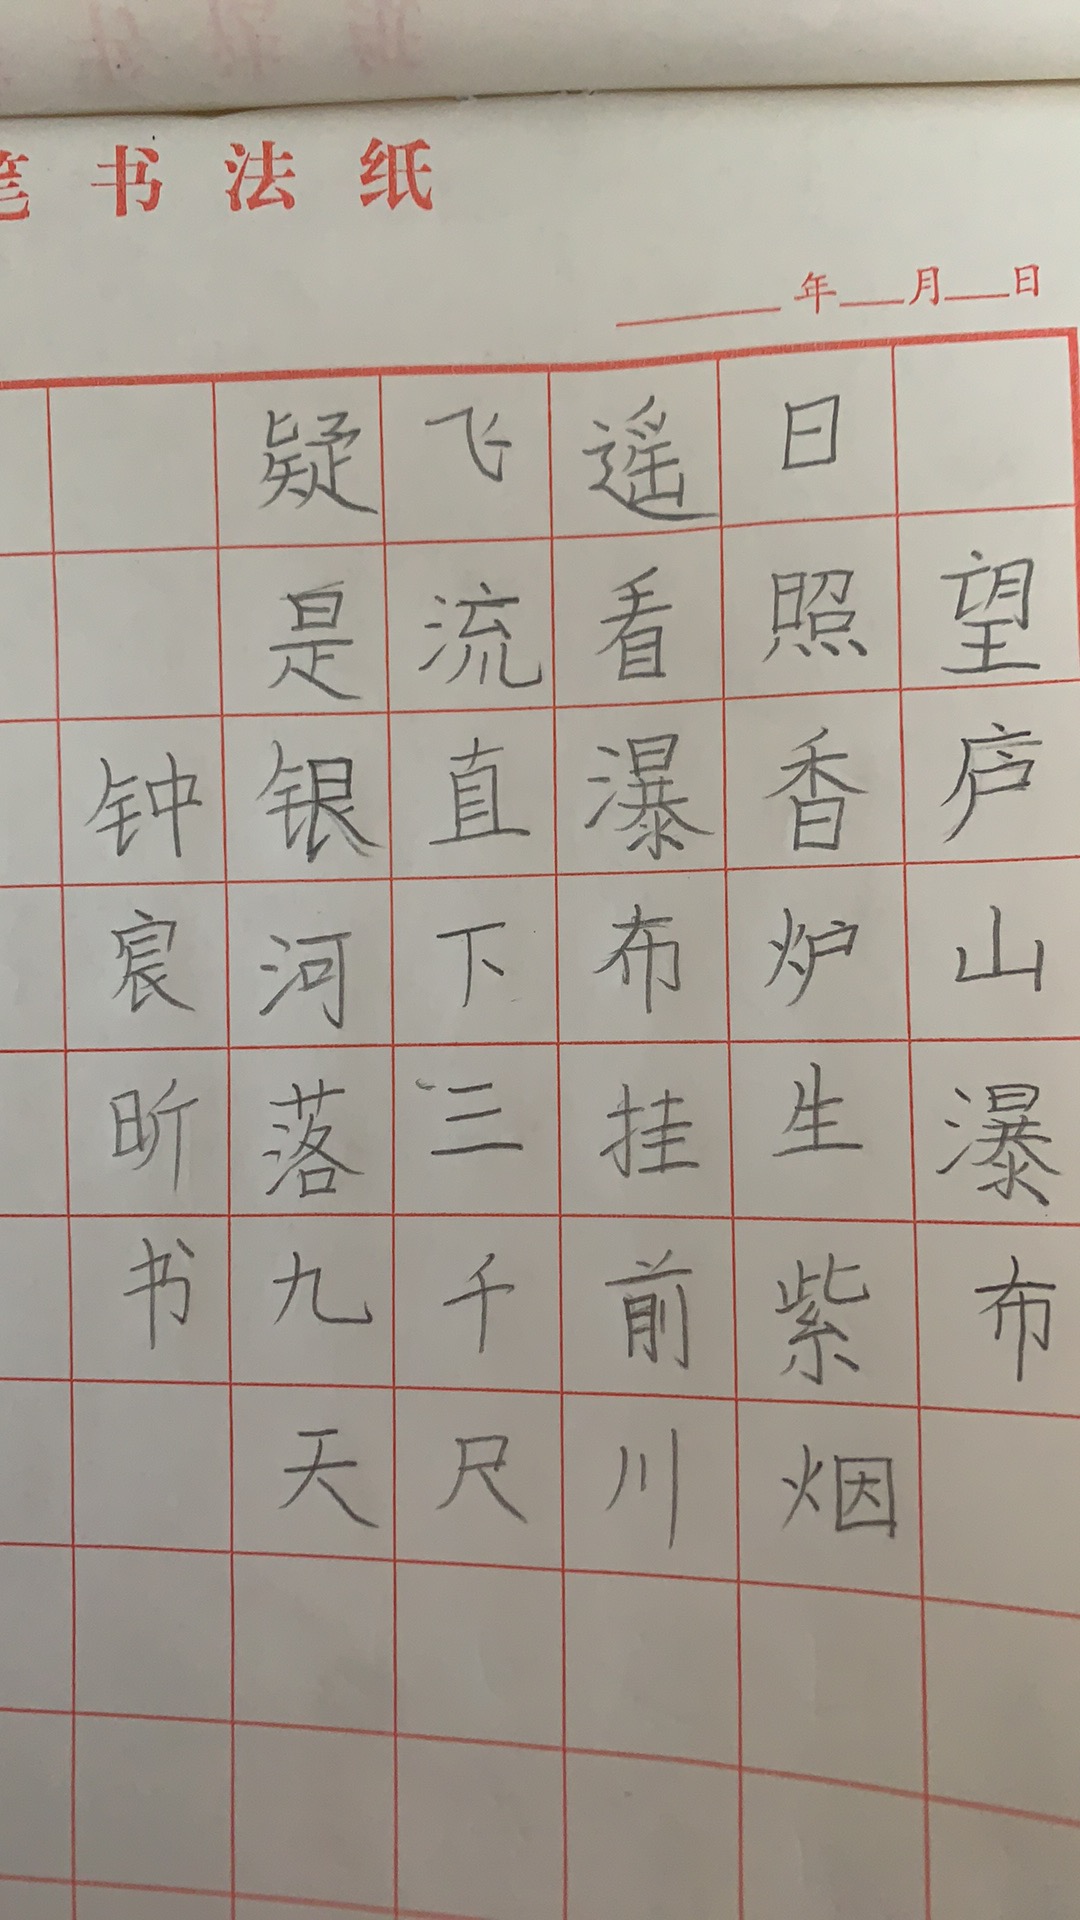 笔书法纸
年 月 日
望庐山瀑布
日照香炉生紫烟
遥看瀑布挂前川
飞流直下三千尺
疑是银河落九天
钟宸昕书